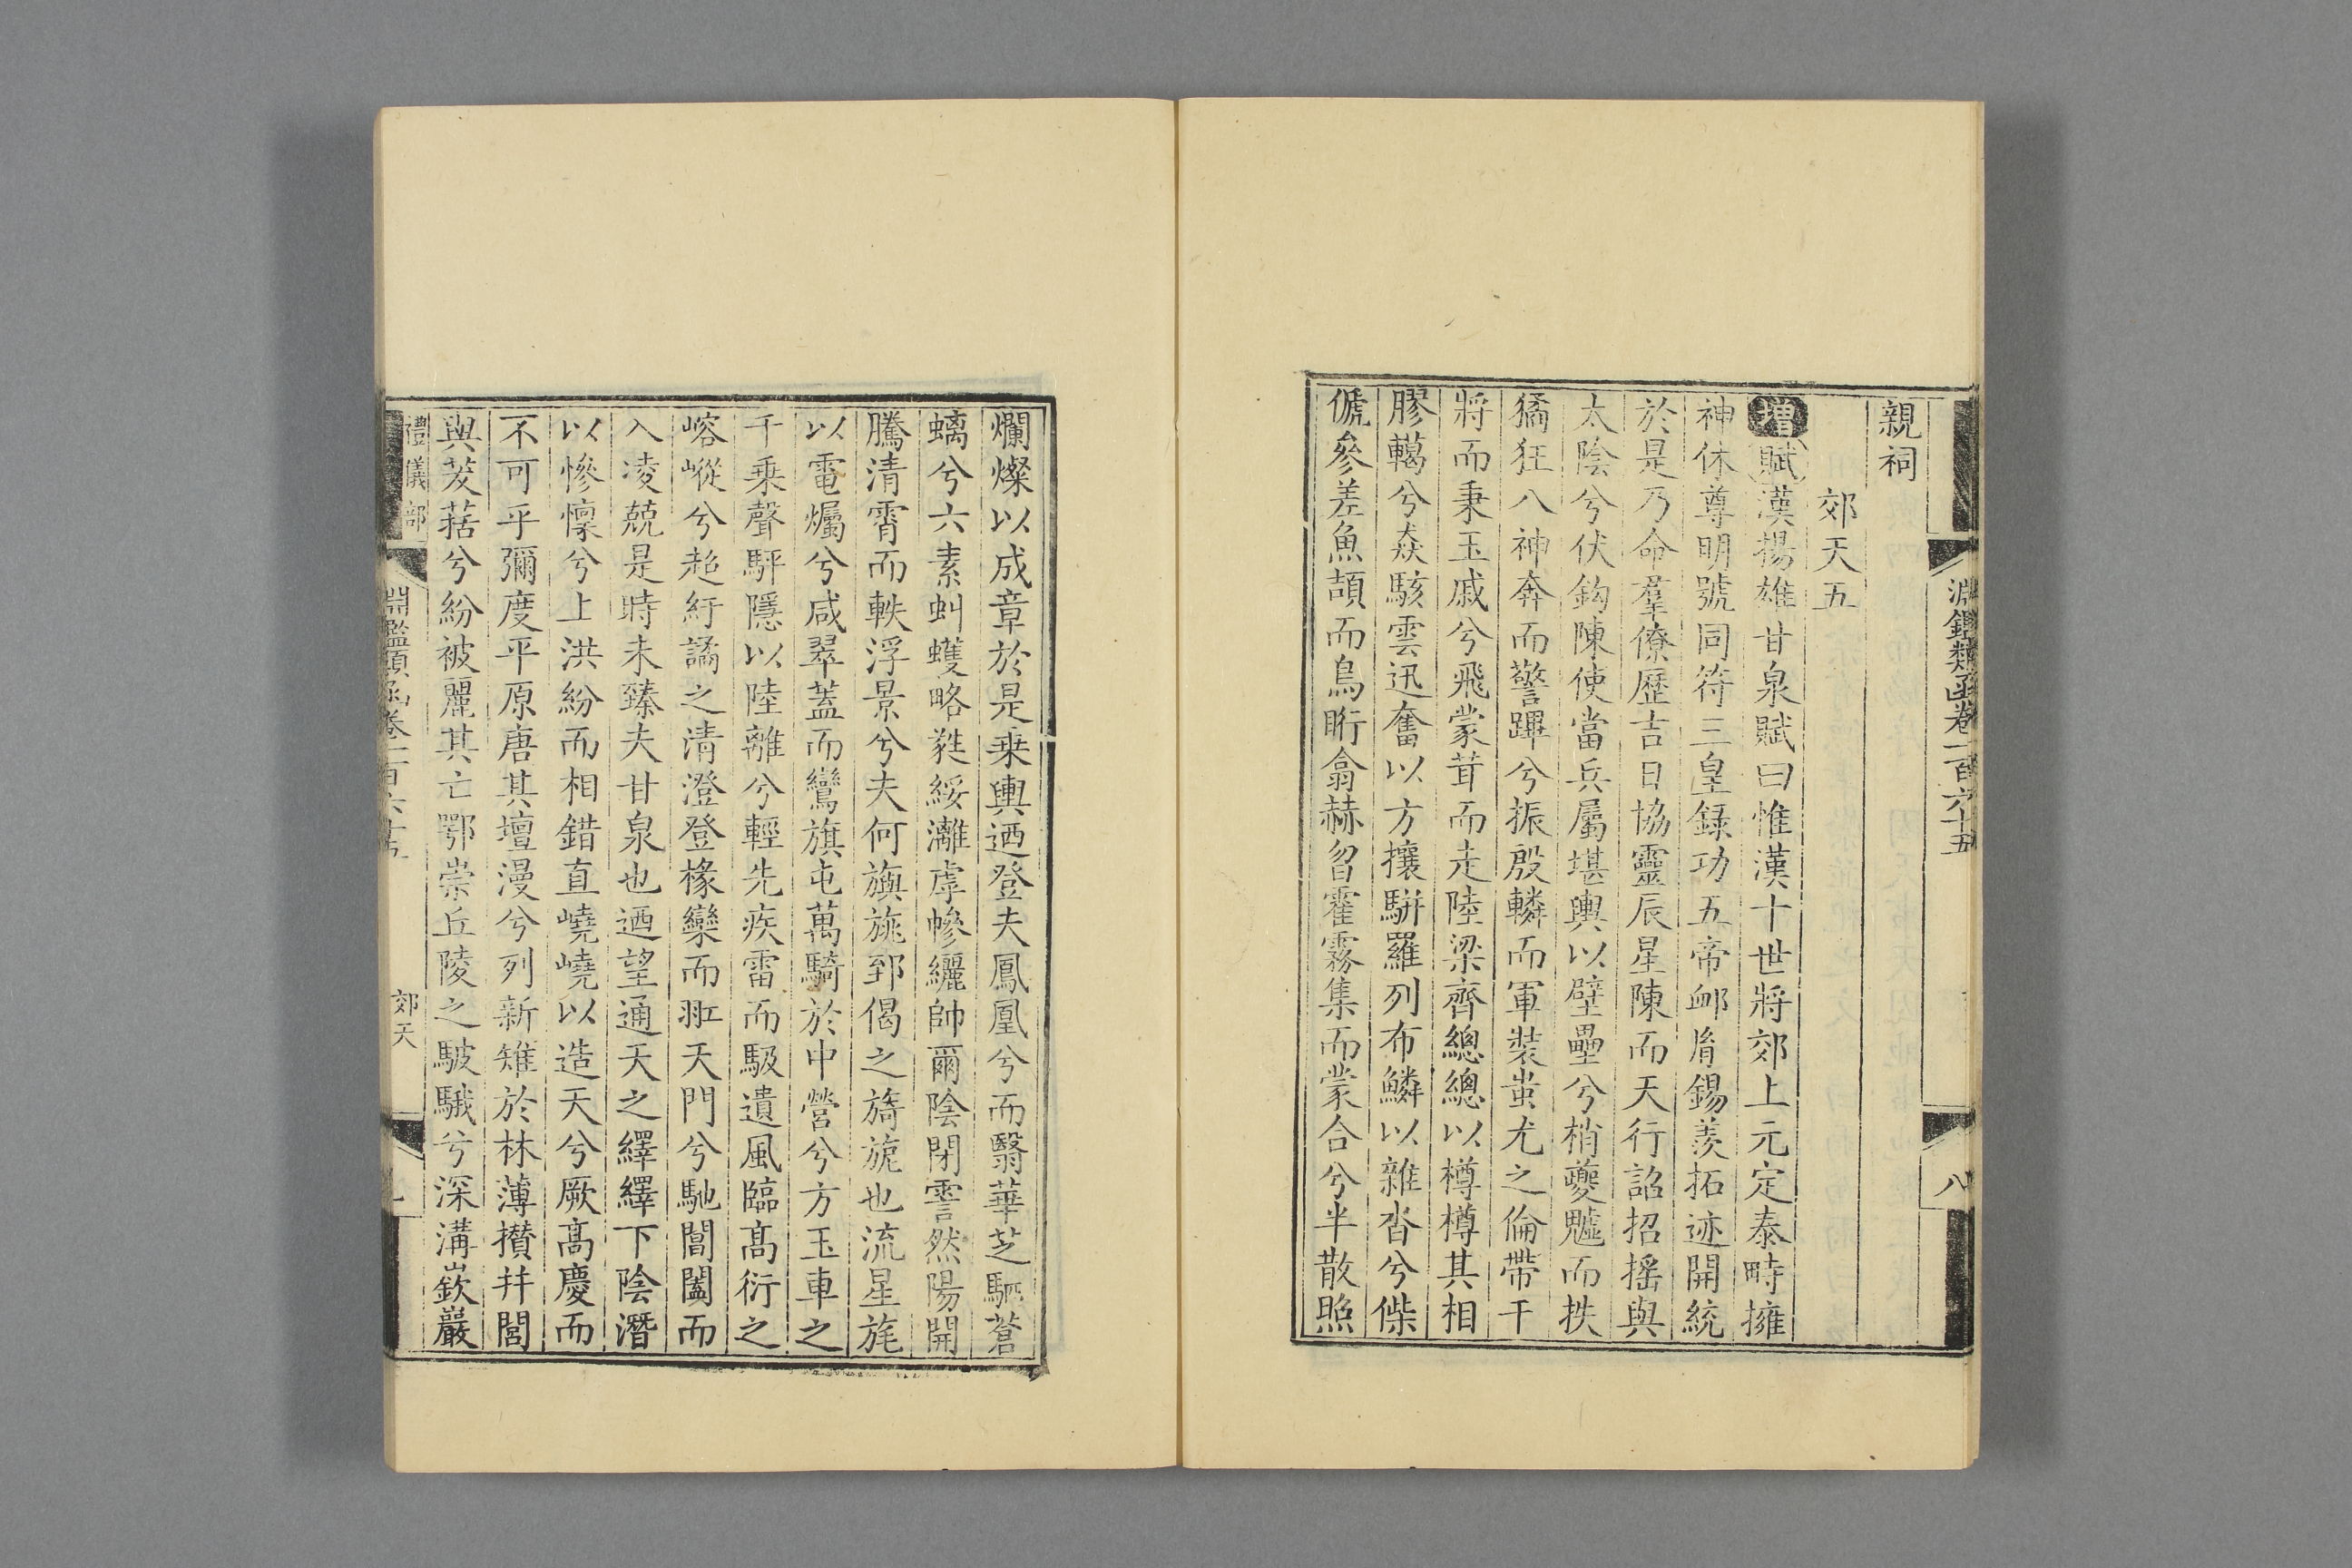 淵鑑類函卷一百六十五
八
親祠
郊天五
增賦漢揚雄甘泉賦曰惟漢十世將郊上元定泰畤擁
神休尊明號同符三皇錄功五帝卹胤錫羨拓迹開統
於是乃命羣僚歷吉日協靈辰星陳而天行詔招搖與
太陰兮伏鈎陳使當兵屬堪輿以壁壘兮梢夔魖而抶
獝狂八神奔而警蹕兮振殷轔而軍裝蚩尤之倫帶干
將而秉玉戚兮飛蒙茸而走陸梁齊總總以樽樽其相
膠轕兮猋駭雲迅奮以方攘駢羅列布鱗以雜沓兮傑
傂參差魚頡而鳥䀪翕赫曶霍霧集而蒙合兮半散照
爛燦以成章於是乗輿迺登夫鳳凰兮而翳華芝駟蒼
螭兮六素虯蠖略蕤綏灕虖幓纚帥爾陰閉霅然陽開
騰清霄而軼浮景兮夫何旟旐郅偈之旖旎也流星旄
以電爥兮咸翠蓋而鸞旗屯萬騎於中營兮方玉車之
千乗聲駍隱以陸離兮輕先疾雷而馺遺風臨高衍之
嵱嵷兮超紆譎之清澄登椽欒而羾天門兮馳閶闔而
入凌兢是時未臻夫甘泉也迺望通天之繹繹下陰潛
以慘懍兮上洪紛而相錯直嶢嶢以造天兮厥高慶而
不可乎彌度平原唐其壇漫兮列新雉於林薄攢幷閭
與茇葀兮紛被麗其亡鄂崇丘陵之駊騀兮深溝嶔巖
禮儀部
淵鑑類函卷一百六十五
郊天